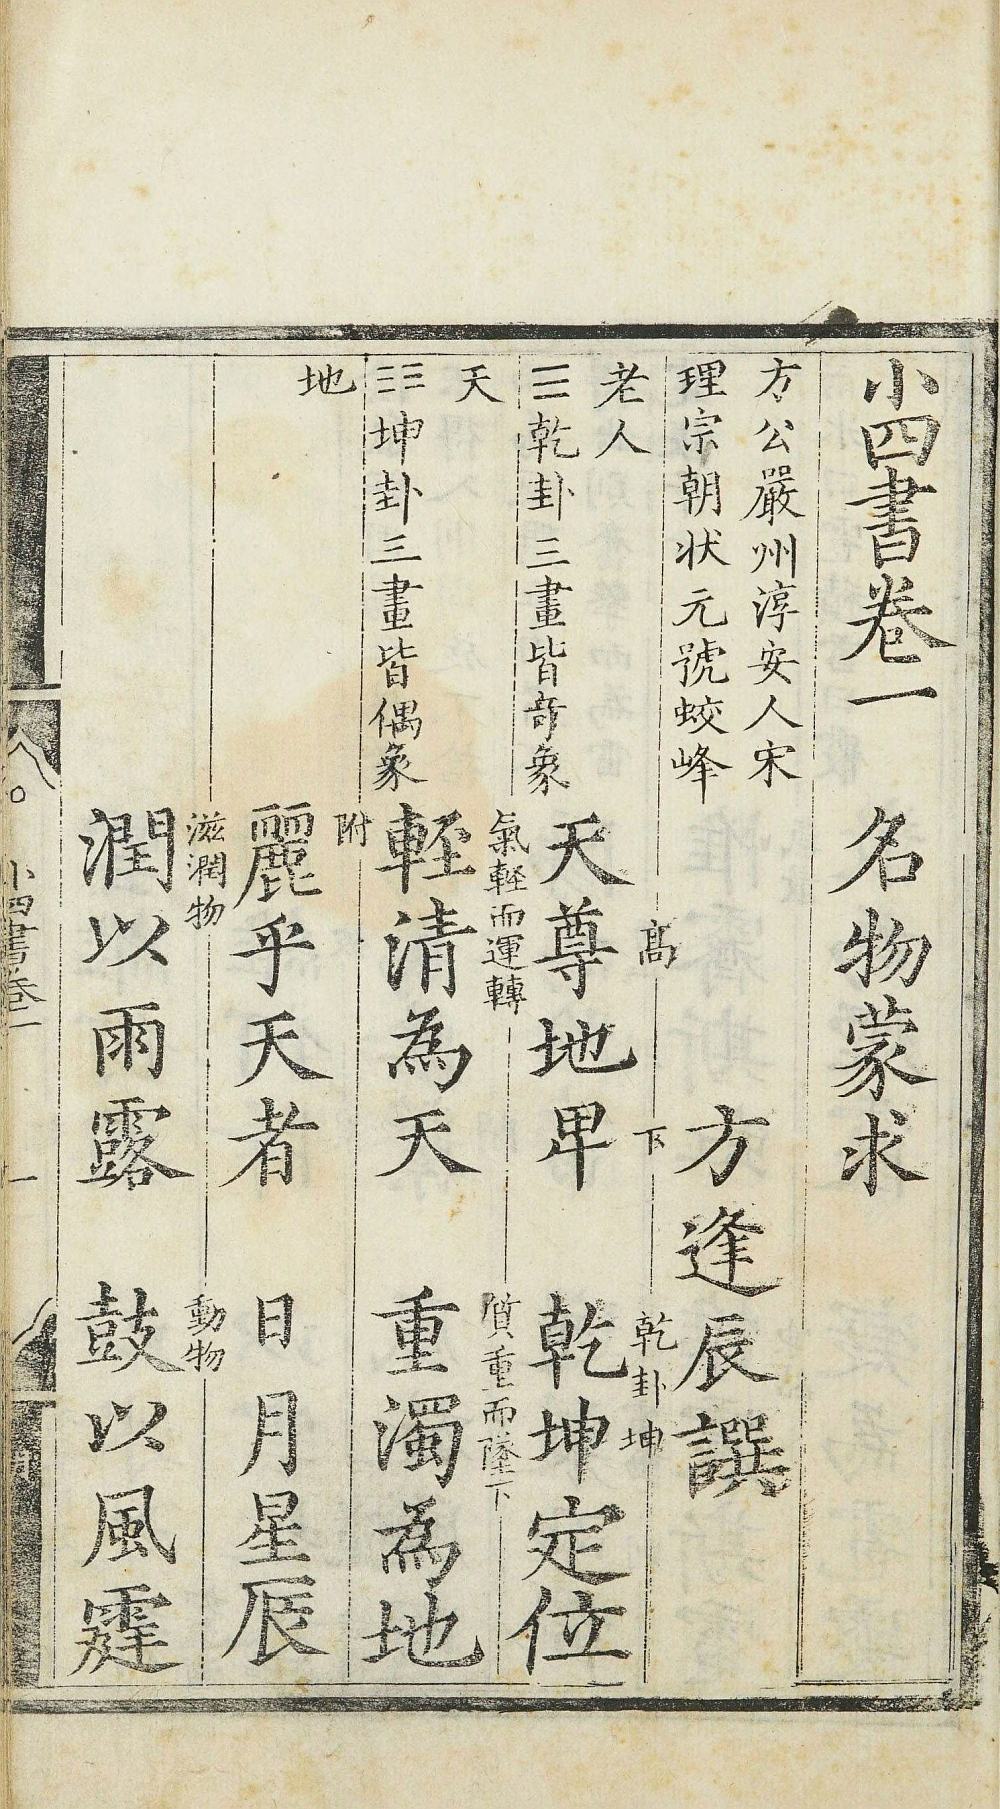 小四書卷一　名物蒙求
方公嚴州淳安人宋
理宗朝狀元號蛟峰
老人
方逢辰譔
☰乾卦三畫皆竒象
天
高　下　乾卦坤
天尊地卑　乾坤定位
☷坤卦三畫皆偶象
地
氣輕而運轉　質重而墜下
輕清為天　重濁為地
附
麗乎天者　日月星辰
滋潤物　動物
潤以雨露　鼓以風霆
小四書卷一　一